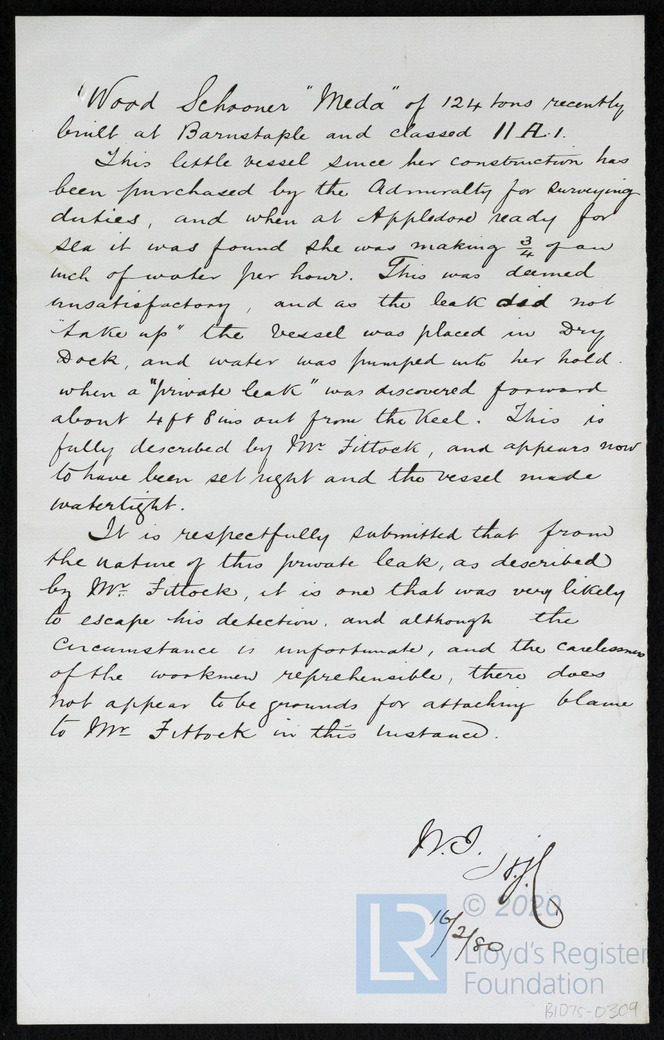 "Wood Schooner "Meda" of 124 tons recently
built at Barnstaple and classed 11 A.1.
This little vessel since her construction has
been purchased by the Admiralty for surveying
duties, and when at Appledore ready for
sea it was found she was making 3/4 of an
inch of water per hour. This was deemed
unsatisfactory, and as the leak did not
"take up" the vessel was placed in Dry
Dock, and water was pumped into her hold.
when a "private leak" was discovered forward
about 4ft 8ins out from the Keel. This is
fully described by Mr. Fittock, and appears now
to have been set right and the vessel made
watertight.
It is respectfully submitted that from
the nature of this private leak, as described
by Mr. Fittock, it is one that was very likely
to escape his detection, and although the
circumstance is unfortunate, and the carelessness
of the workmen reprehensible, there does
not appear to be grounds for attaching blame
to Mr Fittock in this instance.
16/2/80
© 2020
LR
Lloyd's Register
Foundation
BID75-0309